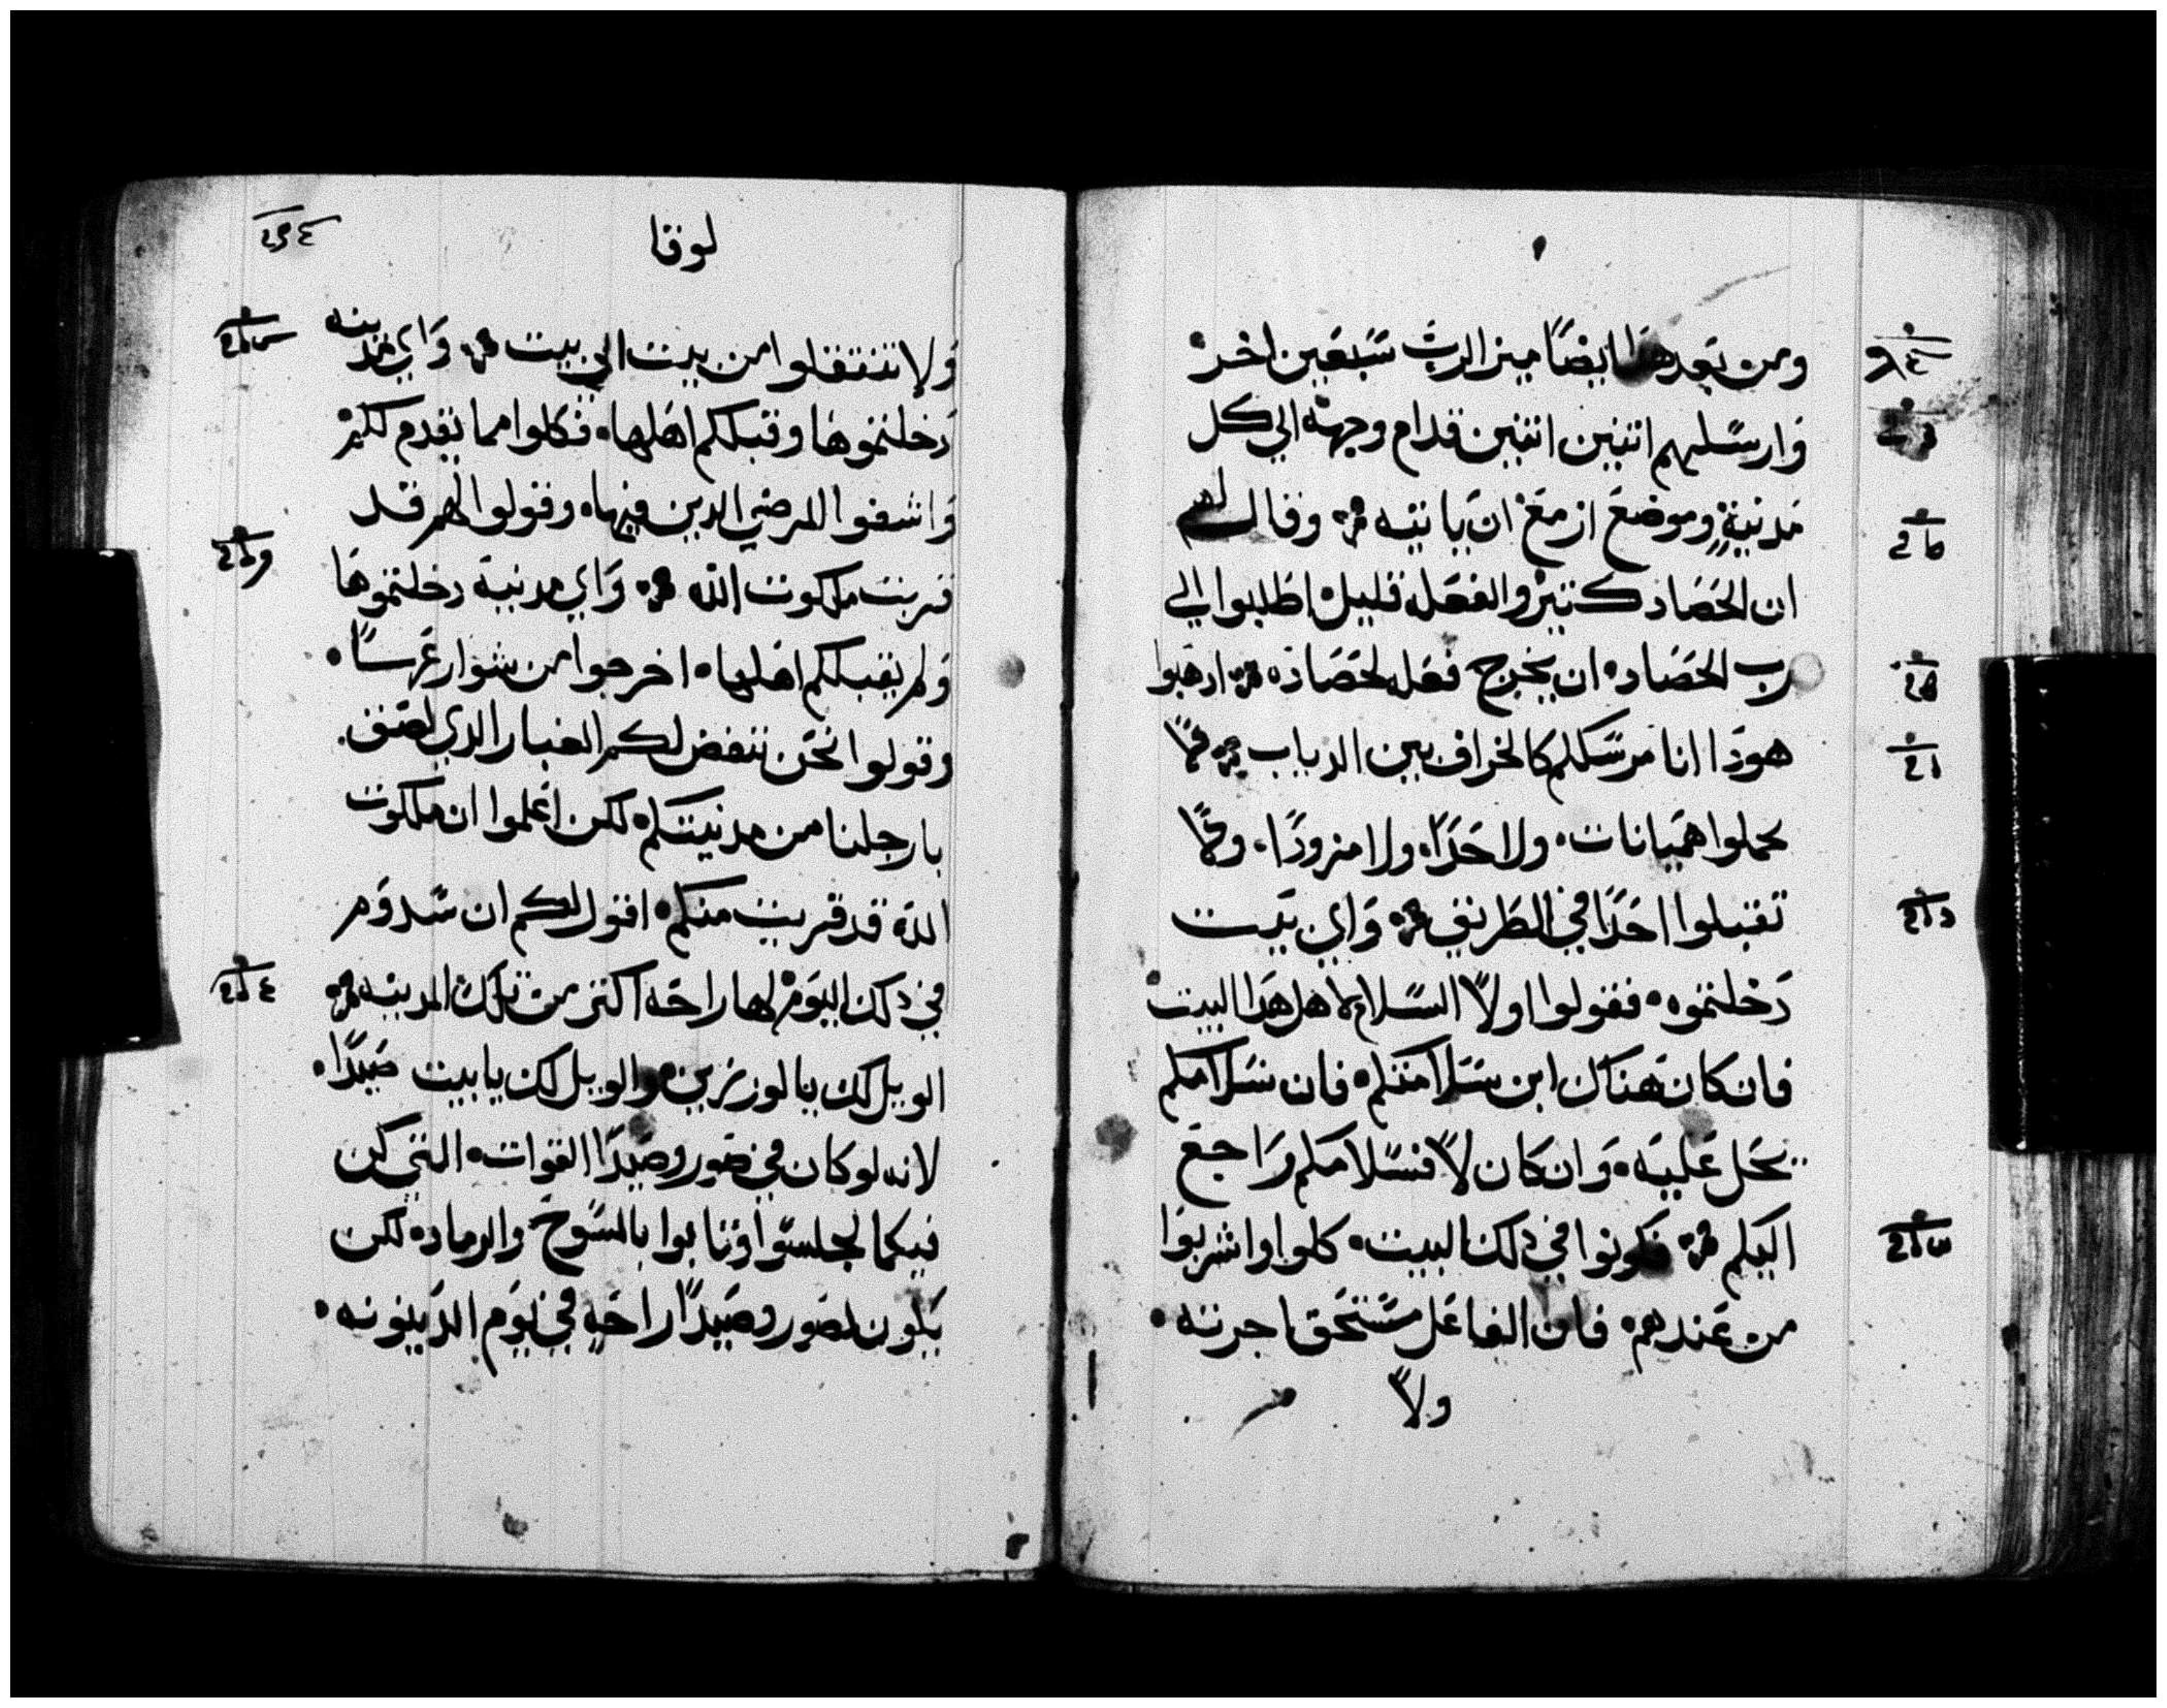 ومن بعد هذا ايضًا ميز الرب سَبعَين اخر
وَارسَلهم اتنين اتنين قدام وجهه الي كل
مَدنيةٍ وموضع ازمع ان ياتيه وقال لهم
ان الحَصَاد كتير والفعَله قليل اطلبوا الي
رب الحَصَاد ان يخرج فعَله لحَصَاده ادهَبوا
هودَا انا مرسَلكم كالخراف بين الدياب لا
تحملوا هميَانات ولا حَدًا ولا مزودًا ولا
تقبلوا احَدًا في الطَريق وَاي بيَت
دَخلتموه فقولوا اولاً السَلام لاهل هَدا البيت
فان كان هَناك ابن سَلامتكم فان سَلامكم
يحَل عَليه وَان كان لاً فسَلامكم رَاجع
اليكم فكونوا في دلك البيت كلوا واشربوا
من عَندهم فان الفاعَل مسَتحَق اجرته
ولاً
لوقا
وَلا تنتقلوا من بيت الي بيت وَاي مدينه
دَخلتموهَا وقبلكم اهَلها فكلوا مما يقدم لكم
وَاشفوا المرضي الدين فيها وقولوا لهم قد
قربت ملكوت الله وَاي مدنية دخلتموهَا
وَلم يقبلكم اهَلها اخرجوا من شوارعَهسا
وقولوا نحَن ننفض لكم الغبار الدي لصَق
بارجلنا من مدنيتكم لكن اعَلموا ان ملكوت
الله قد قربت منكم اقول لكم ان سَدوَم
في دلك اليوَم لها راحَه اكتر من تلك المدينه
الويل لك يا لوزنرين والويل لك يا بيت صَيدًا
لانه لو كان في صَور وصَيدًا القوات التي كن
فيكما لجلسَوا وَتابوا بالمسَوح والرماد لكن
يَكون لصَور وصَيدًا راحَه في يوَم الدَينونه